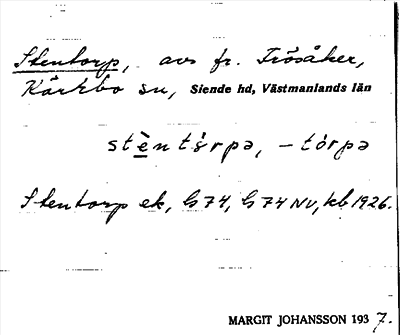 Stentorp, avs fr. Trösåker,
Kärrbo sn, Siende hd, Västmanlands län
stèntórpə, -tórpə
Stentorp ek, G 74, G 74 NV, kb 1926.
MARGIT JOHANSSON 1937.